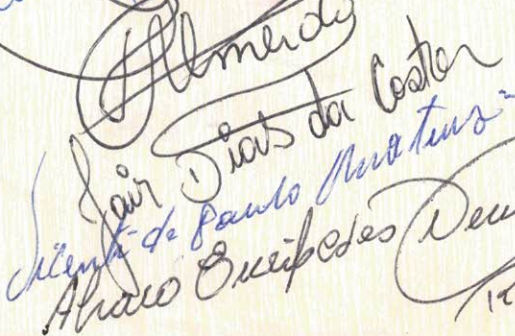 Almeida
Jair Dias da Costa
Vicente de Paulo Martins
Alvaro Eurípedes